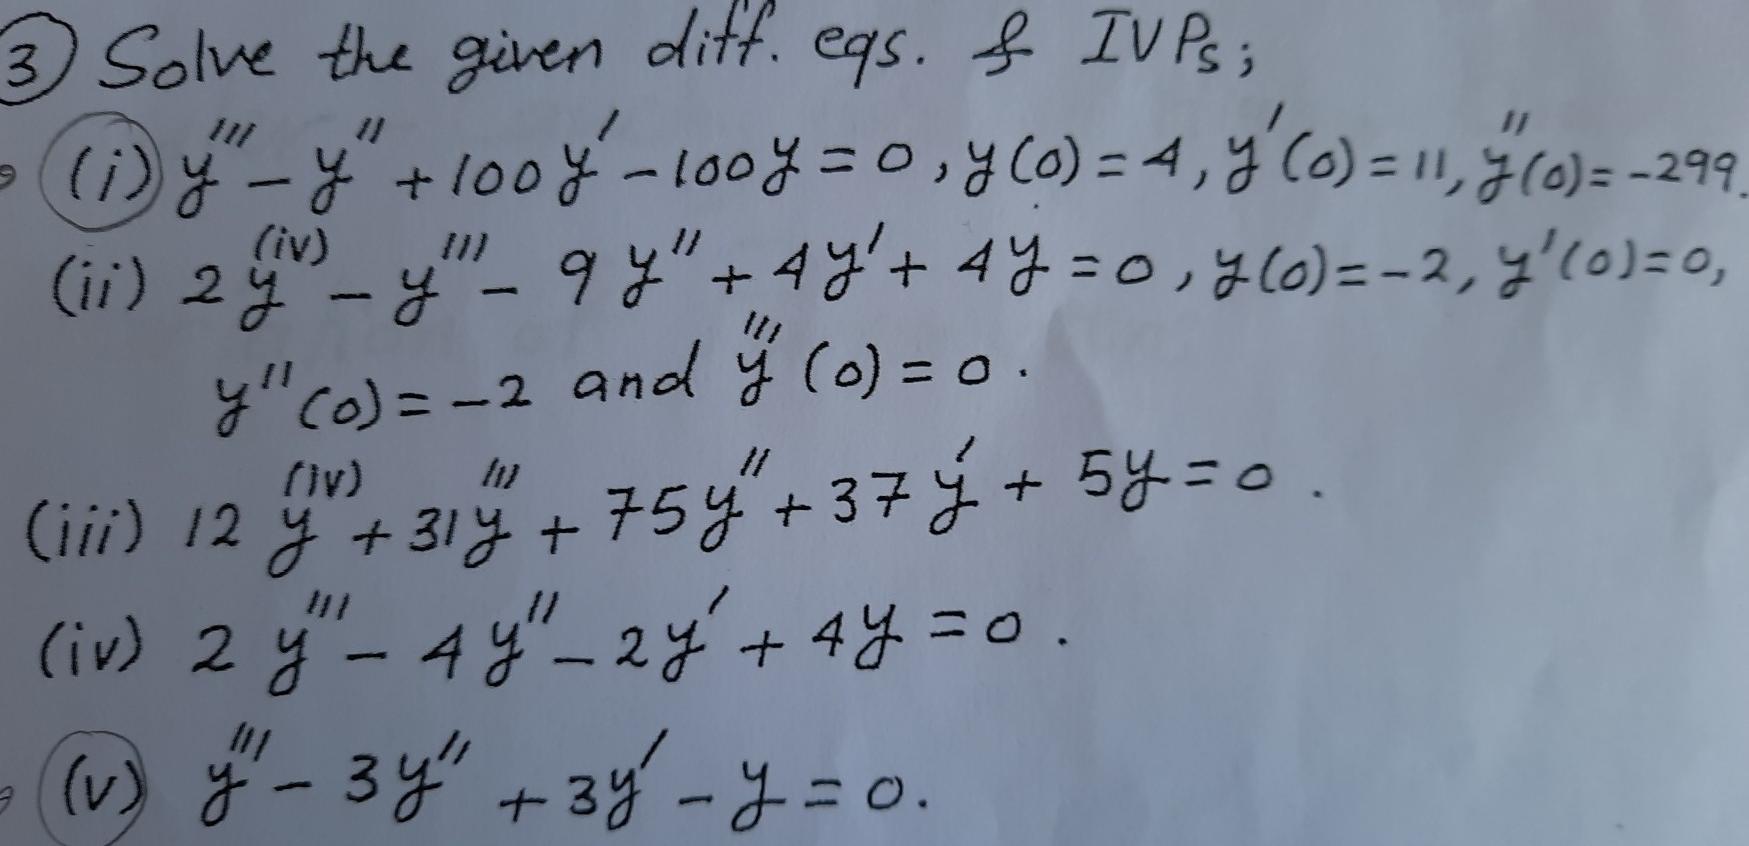 ③ Solve the given diff. eqs. & IVPs;
(i) y''' - y'' + 100y' - 100y = 0, y(0) = 4, y'(0) = 11, y''(0) = -299.
(ii) 2y^(iv) - y''' - 9y'' + 4y' + 4y = 0, y(0) = -2, y'(0) = 0,
y''(0) = -2 and y'''(0) = 0.
(iii) 12y^(iv) + 31y''' + 75y'' + 37y' + 5y = 0.
(iv) 2y''' - 4y'' - 2y' + 4y = 0.
(v) y''' - 3y'' + 3y' - y = 0.